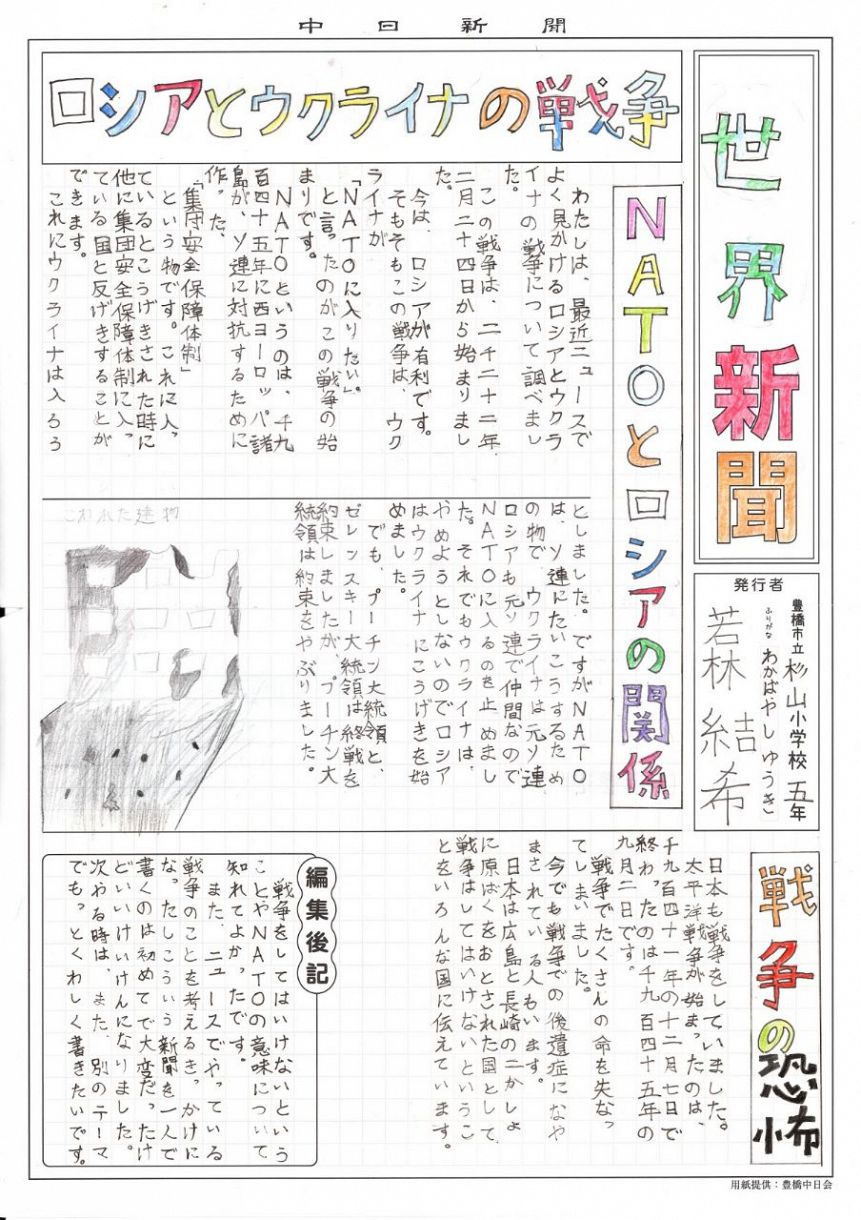 中日新聞
世界新聞
発行者
豊橋市立 杉山小学校 五年
ふりがな わかばやし ゆうき
若林 結希
ロシアとウクライナの戦争
NATOとロシアの関係
わたしは、最近ニュースで
よく見かけるロシアとウクラ
イナの戦争について調べまし
た。
この戦争は、二千二十二年、
二月二十四日から始りまし
た。
今は、ロシアが有利です。
そもそもこの戦争は、ウク
ライナが
「NATOに入りたい」。
と言ったのがこの戦争の始
まりです。
NATOというのは、千九
百四十五年に西ヨーロッパ諸
島が、ソ連に対抗するために
作った、
「集守安全保障体制」
という物です。これに入っ
ているとこうげきされた時に
他に集団安全保障体制に入っ
ている国と反げきすることが
できます。
これにウクライナは入ろう
としました。ですがNATO
は、ソ連にたいこうするため
の物で、ウクライナは元ソ連、
ロシアも元ソ連で仲間なので
NATOに入るのを止めまし
た。それでもウクライナは、
やめようとしないのでロシア
はウクライナにこうげきを始
めました。
でも、プーチン大統領と、
ゼレンスキー大統領は終戦を
約束しましたが、プーチン大
統領は約束をやぶりました。
こわれた建物
戦争の恐怖
日本も戦争をしていました。
太平洋戦争が始まったのは、
千九百四十一年の十二月七日で
終わったのは千九百四十五年の
九月二日です。
戦争でたくさんの命を失なっ
てしまいました。
今でも戦争での後遺症になや
まされている人もいます。
日本は広島と長崎の二かしょ
に原ばくをおとされた国として、
戦争はしてはいけないというこ
とをいろんな国に伝えています。
編集後記
戦争をしてはいけないという
ことやNATOの意味について
知れてよかったです。
また、ニュースでやっている
戦争のことを考えるきっかけに
なったしこういう新聞を一人で
書くのは初めてで大変だったけ
どいいけいけんになりました。
次やる時は、また、別のテーマ
でもっとくわしく書きたいです。
用紙提供：豊橋中日会